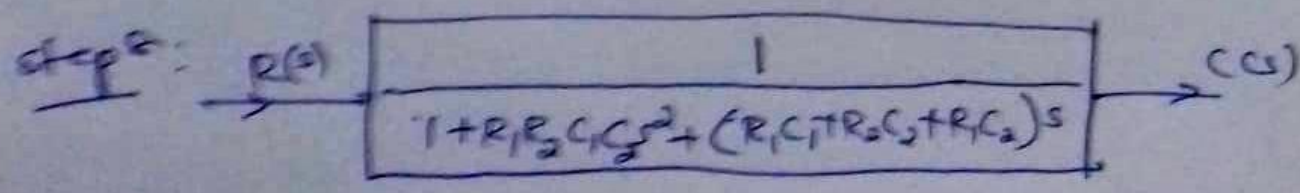 step 8: R(s)
1
C(s)
1+R₁R₂C₁C₂s²+(R₁C₁+R₂C₂+R₁C₂)s